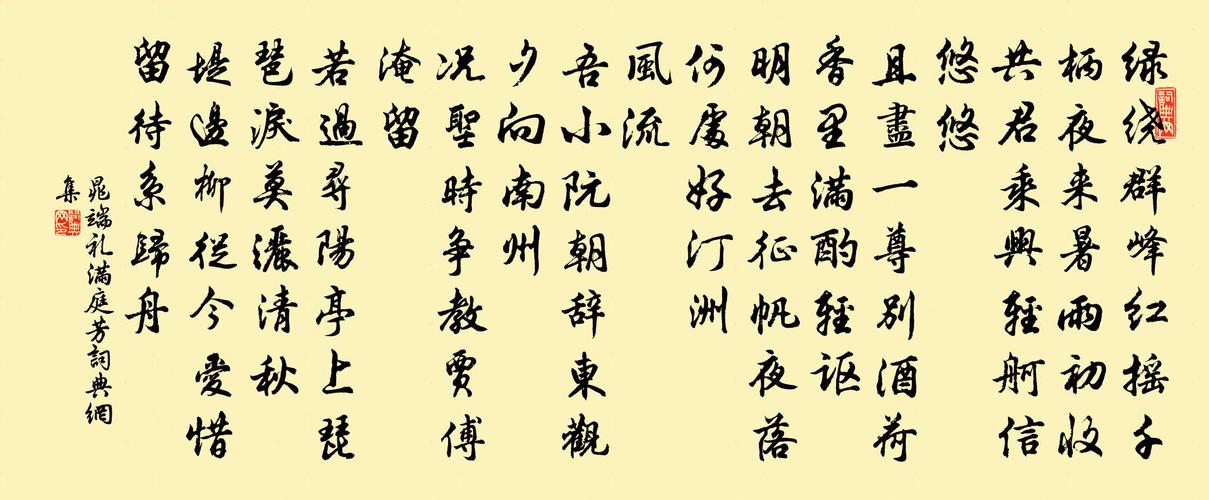 绿绕群峰红摇千
柄夜来暑雨初收
共君乘興輕舸信
悠悠
且盡一尊别酒荷
香里滿酌輕讴
明朝去征帆夜落
何處好汀洲
風流
吾小阮朝辞東觀
夕向南州
况聖時争教贾傅
淹留
若過尋陽亭上琵
琶淚莫灑清秋
堤邊柳從今愛惜
留待系歸舟
晁端礼满庭芳詞典網
集